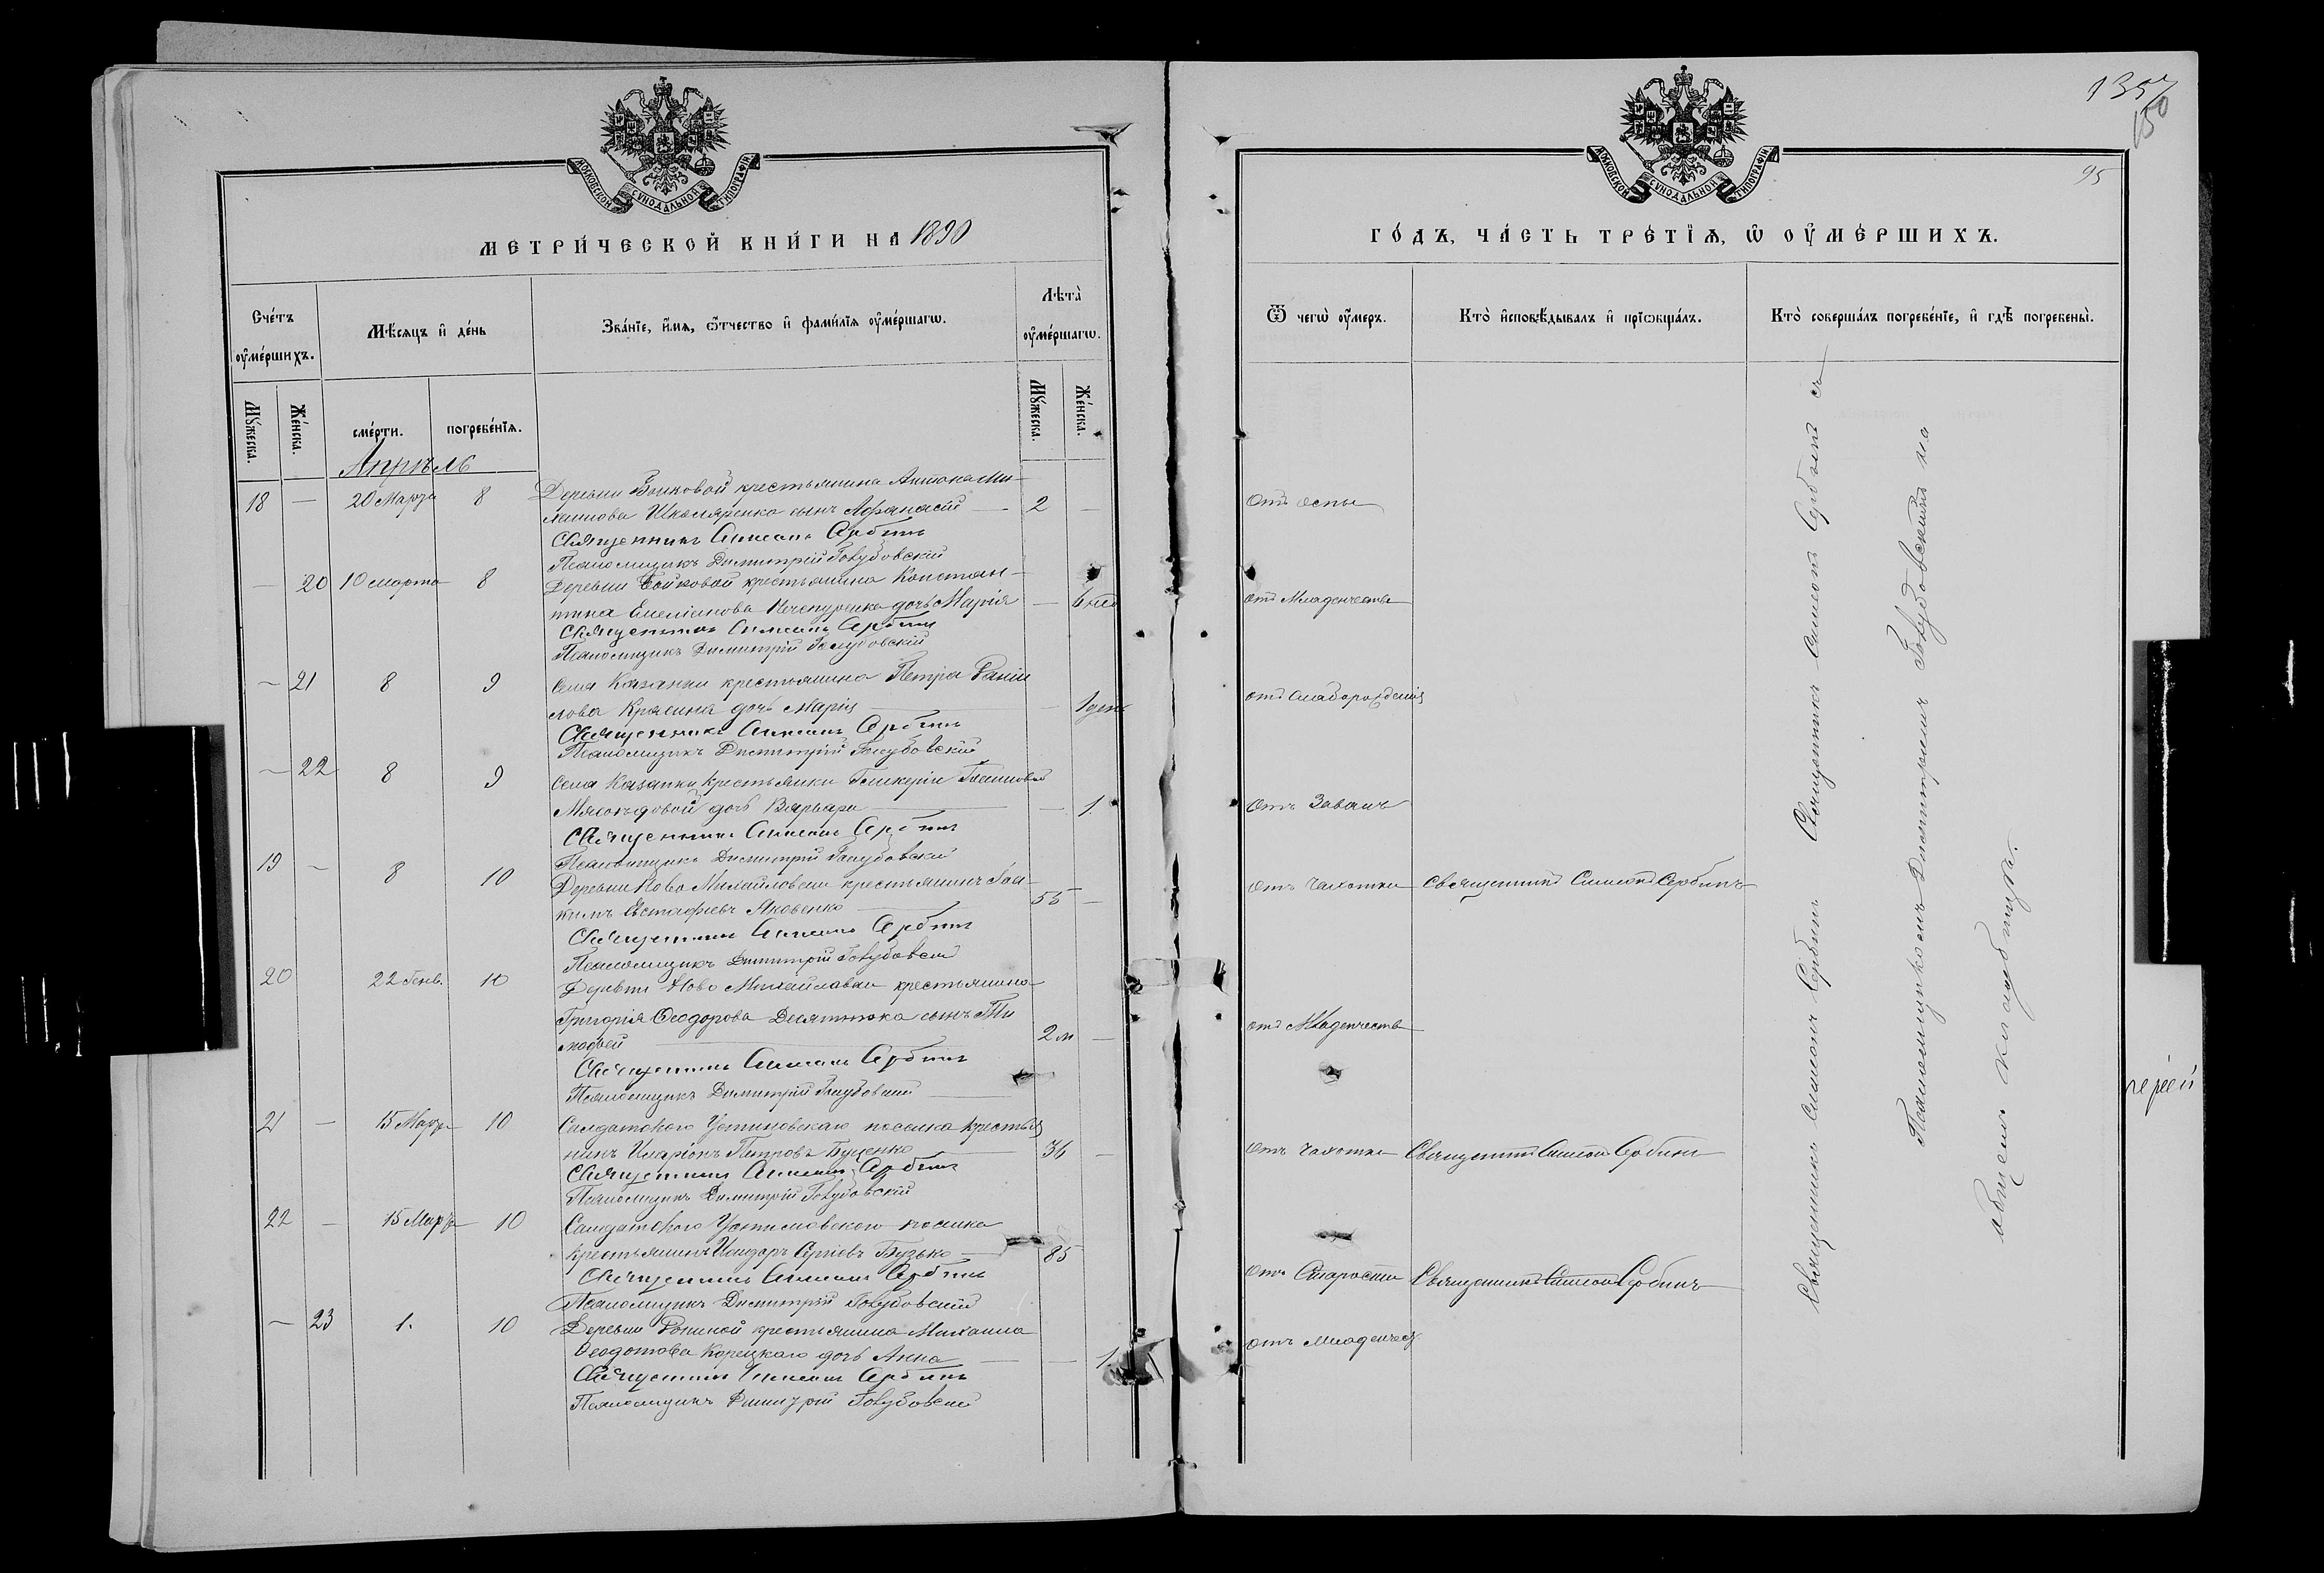 1357
150
95
МОСКОВСКОЙ СѴНОДАЛЬНОЙ ТИПОГРАФІИ
МЕТРИ́ЧЕСКОЙ КНИ́ГИ НА 1890
Сче́тъ оу҆ме́ршихъ.
Мѣ́сяцъ и҆ де́нь
Зва́нїе, и҆́мѧ, ѻ҆́тчество и҆ фами́лїѧ оу҆ме́ршагѡ.
Лѣта̀ оу҆ме́ршагѡ.
Мꙋ́жеска.
Же́нска.
сме́рти.
погребе́нїѧ.
Мꙋ́жеска.
Же́нска.
Апрѣль
18 — 20 Марта 8 Деревни Бойковой крестьянина Антона
Шкляренка сынъ Афанасій — 2 —
Священникъ Симеонъ Сербинъ
Псаломщикъ Димитрій Голубовскій
— 20 10 марта 8 Деревни Бойковой крестьянина Констан-
тина Емеліанова дочь Марія —
Священникъ Симеонъ Сербинъ
Псаломщикъ Димитрій Голубовскій
— 21 8 9 Села Казанки крестьянина Петра Дании
лова дочь Марія — 1 день
Священникъ Симеонъ Сербинъ
Псаломщикъ Димитрій Голубовскій
— 22 8 9 Села Казанки крестьянки Гликеріи
Мясоѣдовой дочь Варвара — 1.
Священникъ Симеонъ Сербинъ
Псаломщикъ Димитрій Голубовскій
19 — 8 10 Деревни Ново Михайловки крестьянинъ Іоа-
кимъ Евстафіевъ Яковенко 55 —
Священникъ Симеонъ Сербинъ
Псаломщикъ Димитрій Голубовскій
20 22 Генв. 10 Деревни Ново Михайловки крестьянина
Григорія Ѳеодорова сынъ Ти
моѳей 2 м —
Священникъ Симеонъ Сербинъ
Псаломщикъ Димитрій Голубовскій
21 — 15 Марта 10 Солдатского Устиновскаго поселка крестья
нинъ Иларіонъ Петровъ Буценко 36 —
Священникъ Симеонъ Сербинъ
Псаломщикъ Димитрій Голубовскій
22 — 15 Марта 10 Солдатского Устиновского поселка
крестьянинъ Исидоръ Сергіевъ Бузько 85
Священникъ Симеонъ Сербинъ
Псаломщикъ Димитрій Голубовскій
— 23 1. 10 Деревни крестьянина Михаила
Ѳеодотова Корецкаго дочь Анна — — 1
Священникъ Симеонъ Сербинъ
Псаломщикъ Димитрій Голубовскій
МОСКОВСКОЙ СѴНОДАЛЬНОЙ ТИПОГРАФІИ
ГО́ДЪ, ЧА́СТЬ ТРЕ́ТЇѦ, Ѡ҆ ОУ҆МЕ́РШИХЪ.
Ѿ чегѡ̀ оу҆́меръ.
Кто̀ и҆сповѣ́дывалъ и҆ прїѡбща́лъ.
Кто̀ соверша́лъ погребе́нїе, и҆ гдѣ̀ погребены̀.
Отъ оспы
отъ младенчества
отъ слаборожденія
отъ
отъ чахотки Священникъ Симеонъ Сербинъ
отъ младенчества
отъ чахотки Священникъ Симеонъ Сербинъ
отъ старости Священникъ Симеонъ Сербинъ
отъ младенчест
Священникъ Симеонъ Сербинъ Священникъ Симеонъ Сербинъ съ
Псаломщикомъ Димитріемъ Голубовскимъ на
общемъ кладбищѣ.